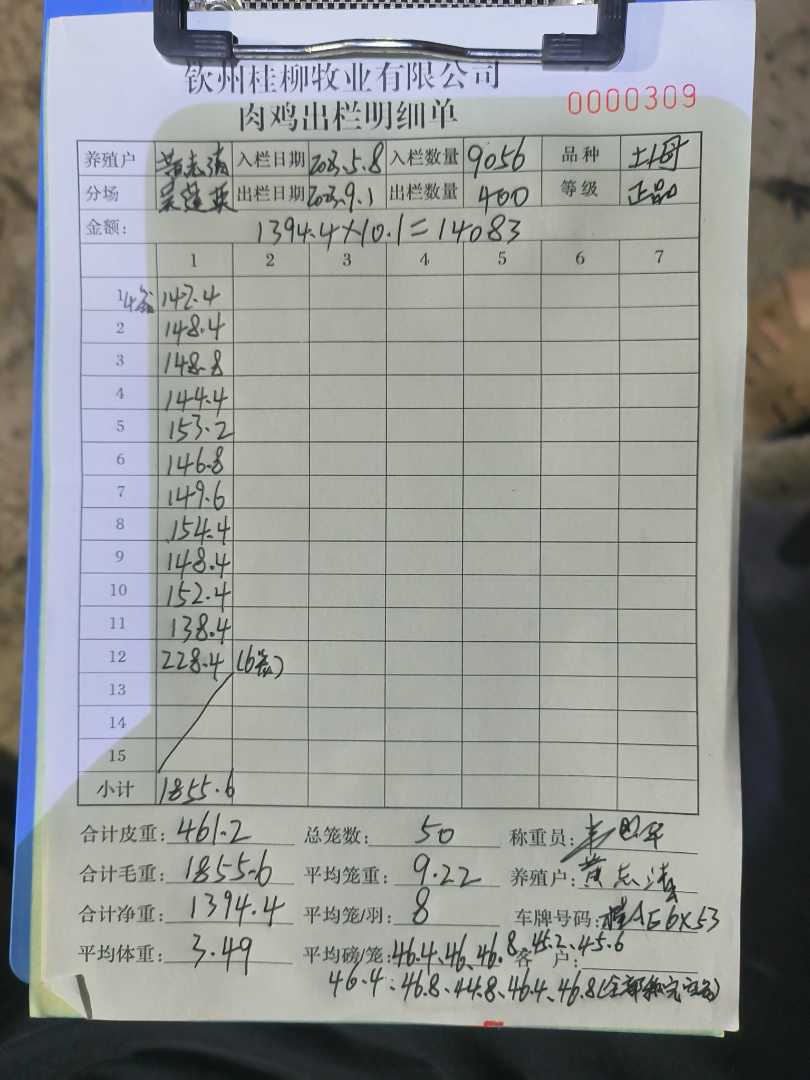 钦州桂柳牧业有限公司
肉鸡出栏明细单 0000309
养殖户 黄志清 入栏日期 2023.5.8 入栏数量 9056 品种 土2母
分场 出栏日期 2023.9.1 出栏数量 400 等级 正品
金额: 1394.4×10.1=14083
1 2 3 4 5 6 7
1 4笼 142.4
2 148.4
3 148.8
4 144.4
5 153.2
6 146.8
7 149.6
8 154.4
9 148.4
10 152.4
11 138.4
12 228.4 (6笼)
13
14
15
小计 1855.6
合计皮重: 461.2 总笼数: 50 称重员:
合计毛重: 1855.6 平均笼重: 9.22 养殖户: 黄志清
合计净重: 1394.4 平均笼/羽: 8 车牌号码: 桂AE6X53
平均体重: 3.49 平均磅/笼: 46.4、46、46.8、45.2、45.6 客户:
46.4、46.8、44.8、46.4、46.8